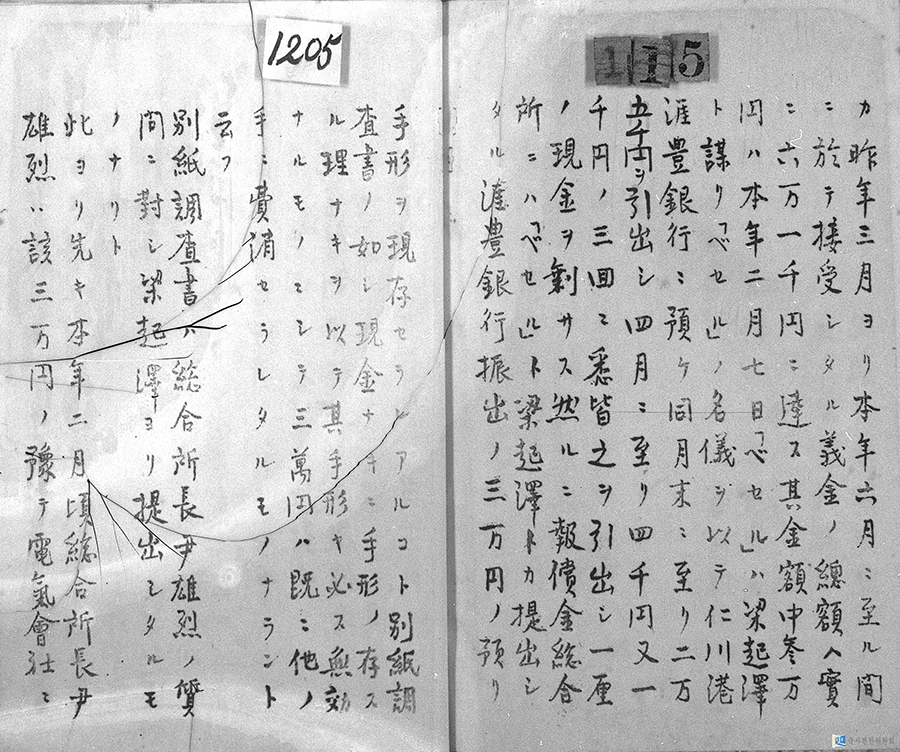 115
カ昨年三月ヨリ本年六月ニ至ル間
ニ於テ接受シタル義金ノ總額ハ實
ニ六万一千円ニ達ス其金額中参万
円ハ本年二月七日「ベセル」ハ梁起澤
ト謀リ「ベセル」ノ名儀ヲ以テ仁川港
滙豊銀行ニ預ケ同月末ニ至リ二万
五千円ヲ引出シ四月ニ至リ四千円又一
千円ノ三回ニ悉皆之ヲ引出シ一厘
ノ現金ヲ剰サス然ルニ報償金総合
所ニハ「ベセル」ト梁起澤トカ提出シ
タル滙豊銀行振出ノ三万円ノ預リ
1205
手形ヲ現存セラレアルコト別紙調
査書ノ如シ現金ナキニ手形ノ存ス
ル理ナキヲ以テ其手形ハ必ス無効
ナルモノニシテ三萬円ハ既ニ他ノ
手ニ費消セラレタルモノナラント
云フ
別紙調査書ハ総合所長尹雄烈ノ質
問ニ對シ梁起澤ヨリ提出シタルモ
ノナリト
此ヨリ先キ本年二月頃総合所長尹
雄烈ハ該三万円ノ豫テ電氣會社ニ